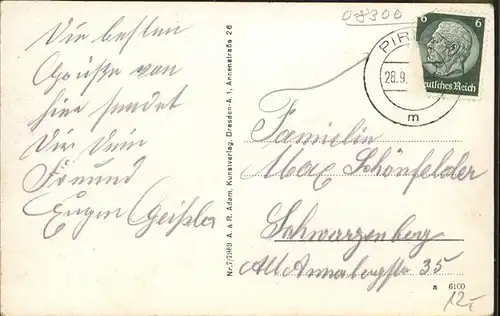 08300
Die besten
Grüße von
hier sendet
Dir Dein
Freund
Eugen Geißler
Nr. 7/7969 A. & R. Adam, Kunstverlag, Dresden-A. 1, Annenstraße 26
PIR
28.9.
m
6 6
Deutsches Reich
Familie
Max Schönfelder
Schwarzenberg
Alt Annabergstr 35
a 6100
12,-